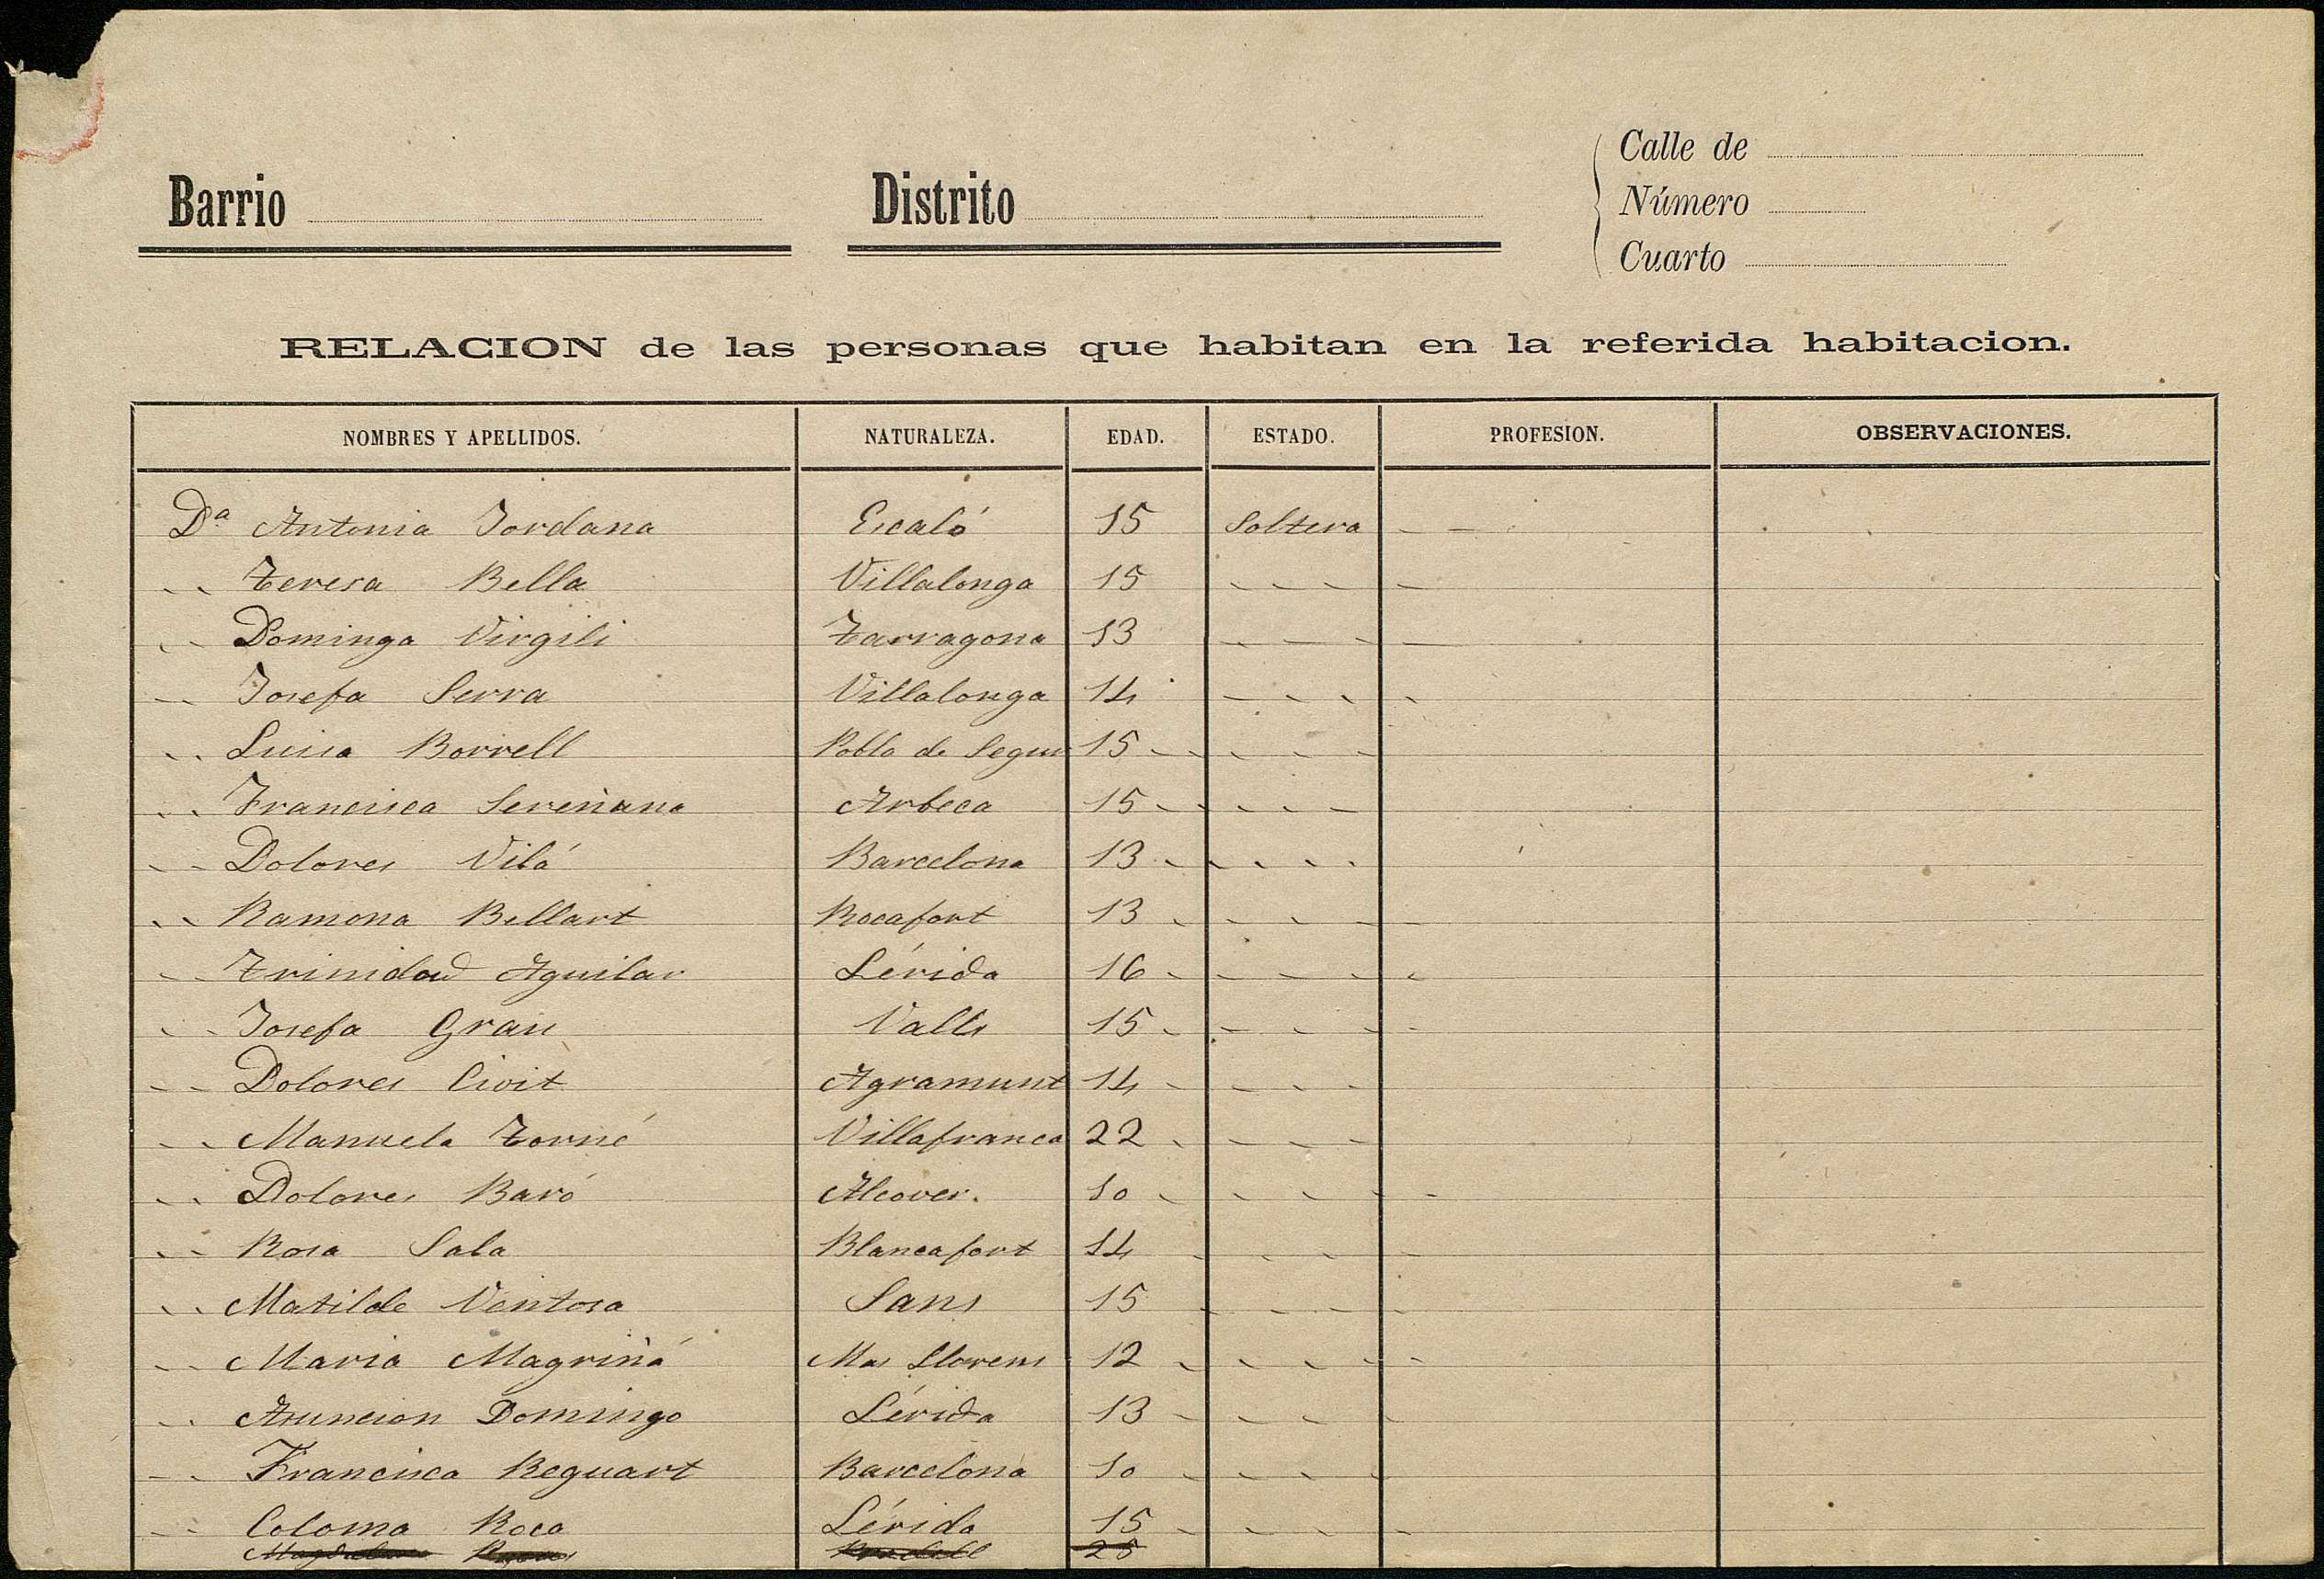 Calle de
Barrio Distrito Número
Cuarto
RELACION de las personas que habitan en la referida habitacion.
NOMBRES Y APELLIDOS. NATURALEZA. EDAD. ESTADO. PROFESION. OBSERVACIONES.
Dª Antonia Jordana Escaló 15 Soltera
Teresa Bella Villalonga 15
Dominga Virgili Tarragona 13
Josefa Serra Villalonga 14
Luisa Borrell Pobla de Segur 15
Francisca Sereñana Arbeca 15
Dolores Vilá Barcelona 13
Ramona Bellart Rocafort 13
Trinidad Aguilar Lérida 16
Josefa Grau Valls 15
Dolores Civit Agramunt 14
Manuela Torné Villafranca 22
Dolores Baró Alcover. 10
Rosa Sala Blancafort 14
Matilde Ventosa Sans 15
Maria Magriñá Mas Llorens 12
Asuncion Domingo Lérida 13
Francisca Reguart Barcelona 10
Coloma Roca Lérida 15
Magdalena 25